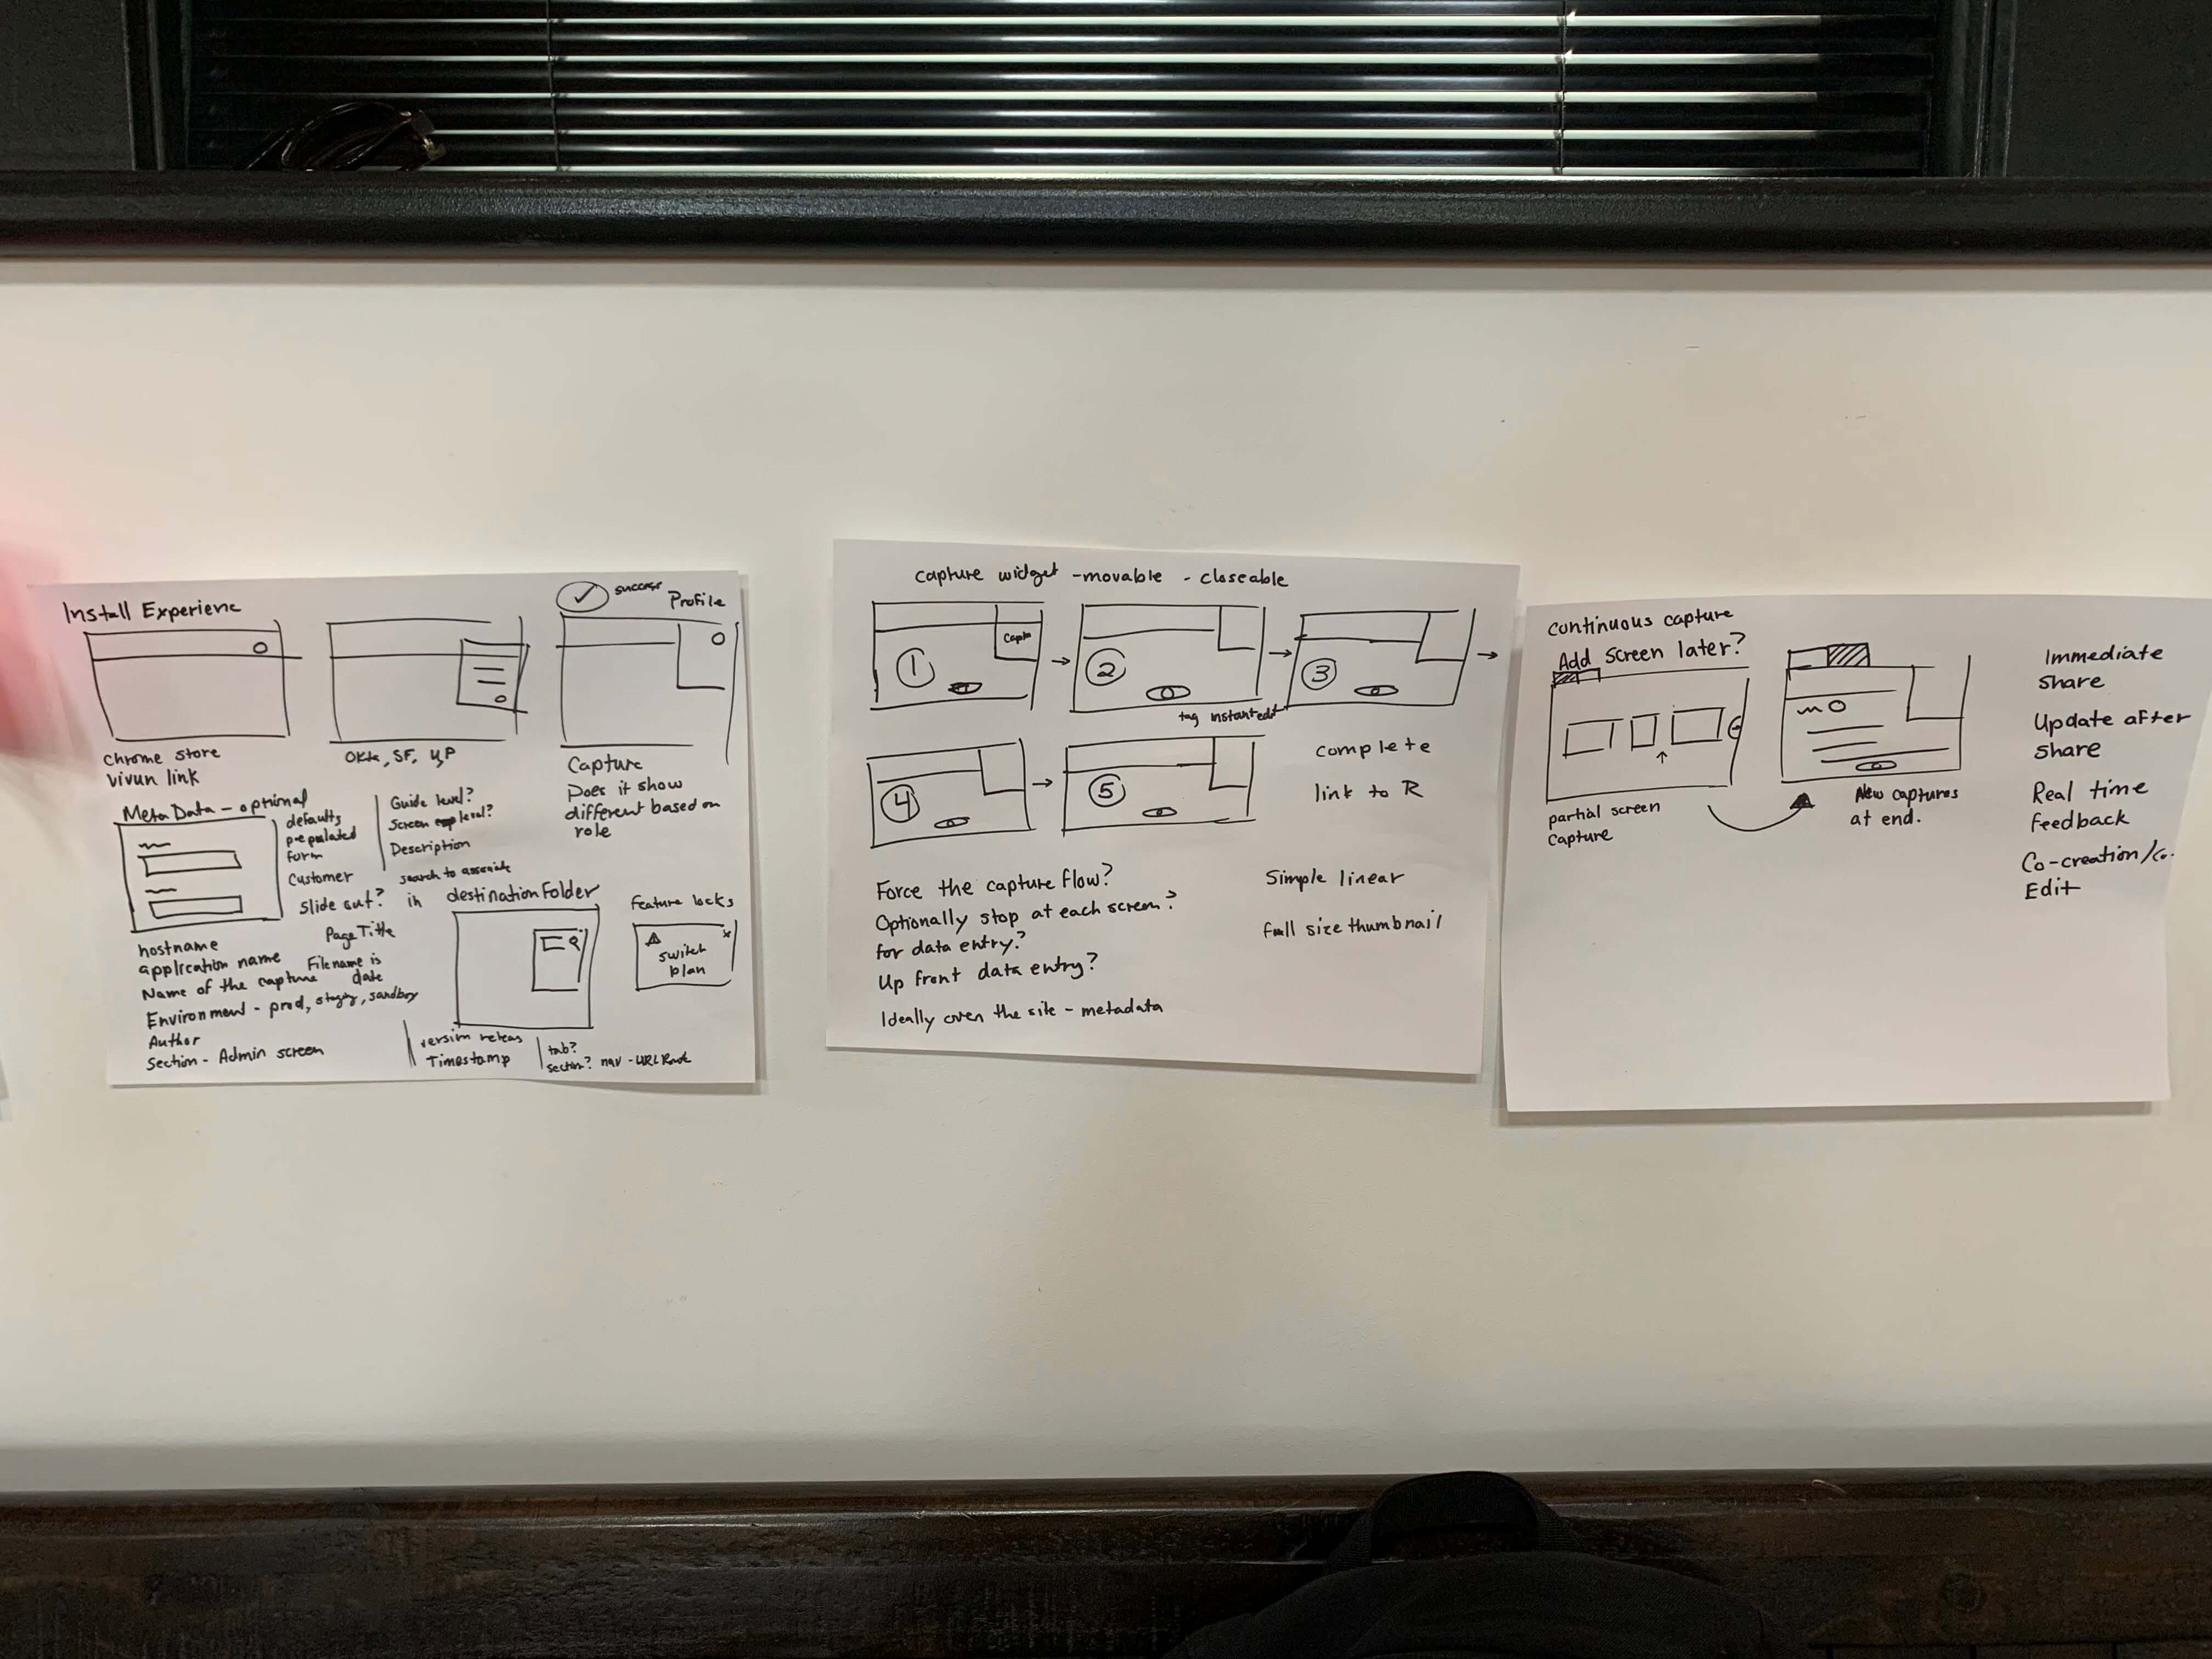 Install Experienc
success
Profile
chrome store
vivun link
Okta, SF, U,P
Capture
Does it show
different based on
role
MetaData - optional
defaults
prepopulated
form
Customer
slide out?
Guide level?
Screen level?
Description
search to associate
in destination Folder
feature locks
switch
plan
x
hostname
application name
Name of the capture
Environment - prod, staging, sandbox
Author
Section - Admin screen
Page Title
Filename is
date
version
Timestamp
tab?
section? nav - URL
capture widget - movable - closeable
1
2
3
tag instant edit
4
5
complete
link to R
Force the capture flow?
Optionally stop at each screen?
for data entry?
Up front data entry?
Ideally over the site - metadata
Simple linear
full size thumbnail
continuous capture
Add screen later?
partial screen
capture
New captures
at end.
Immediate
share
Update after
share
Real time
feedback
Co-creation/Co-
Edit